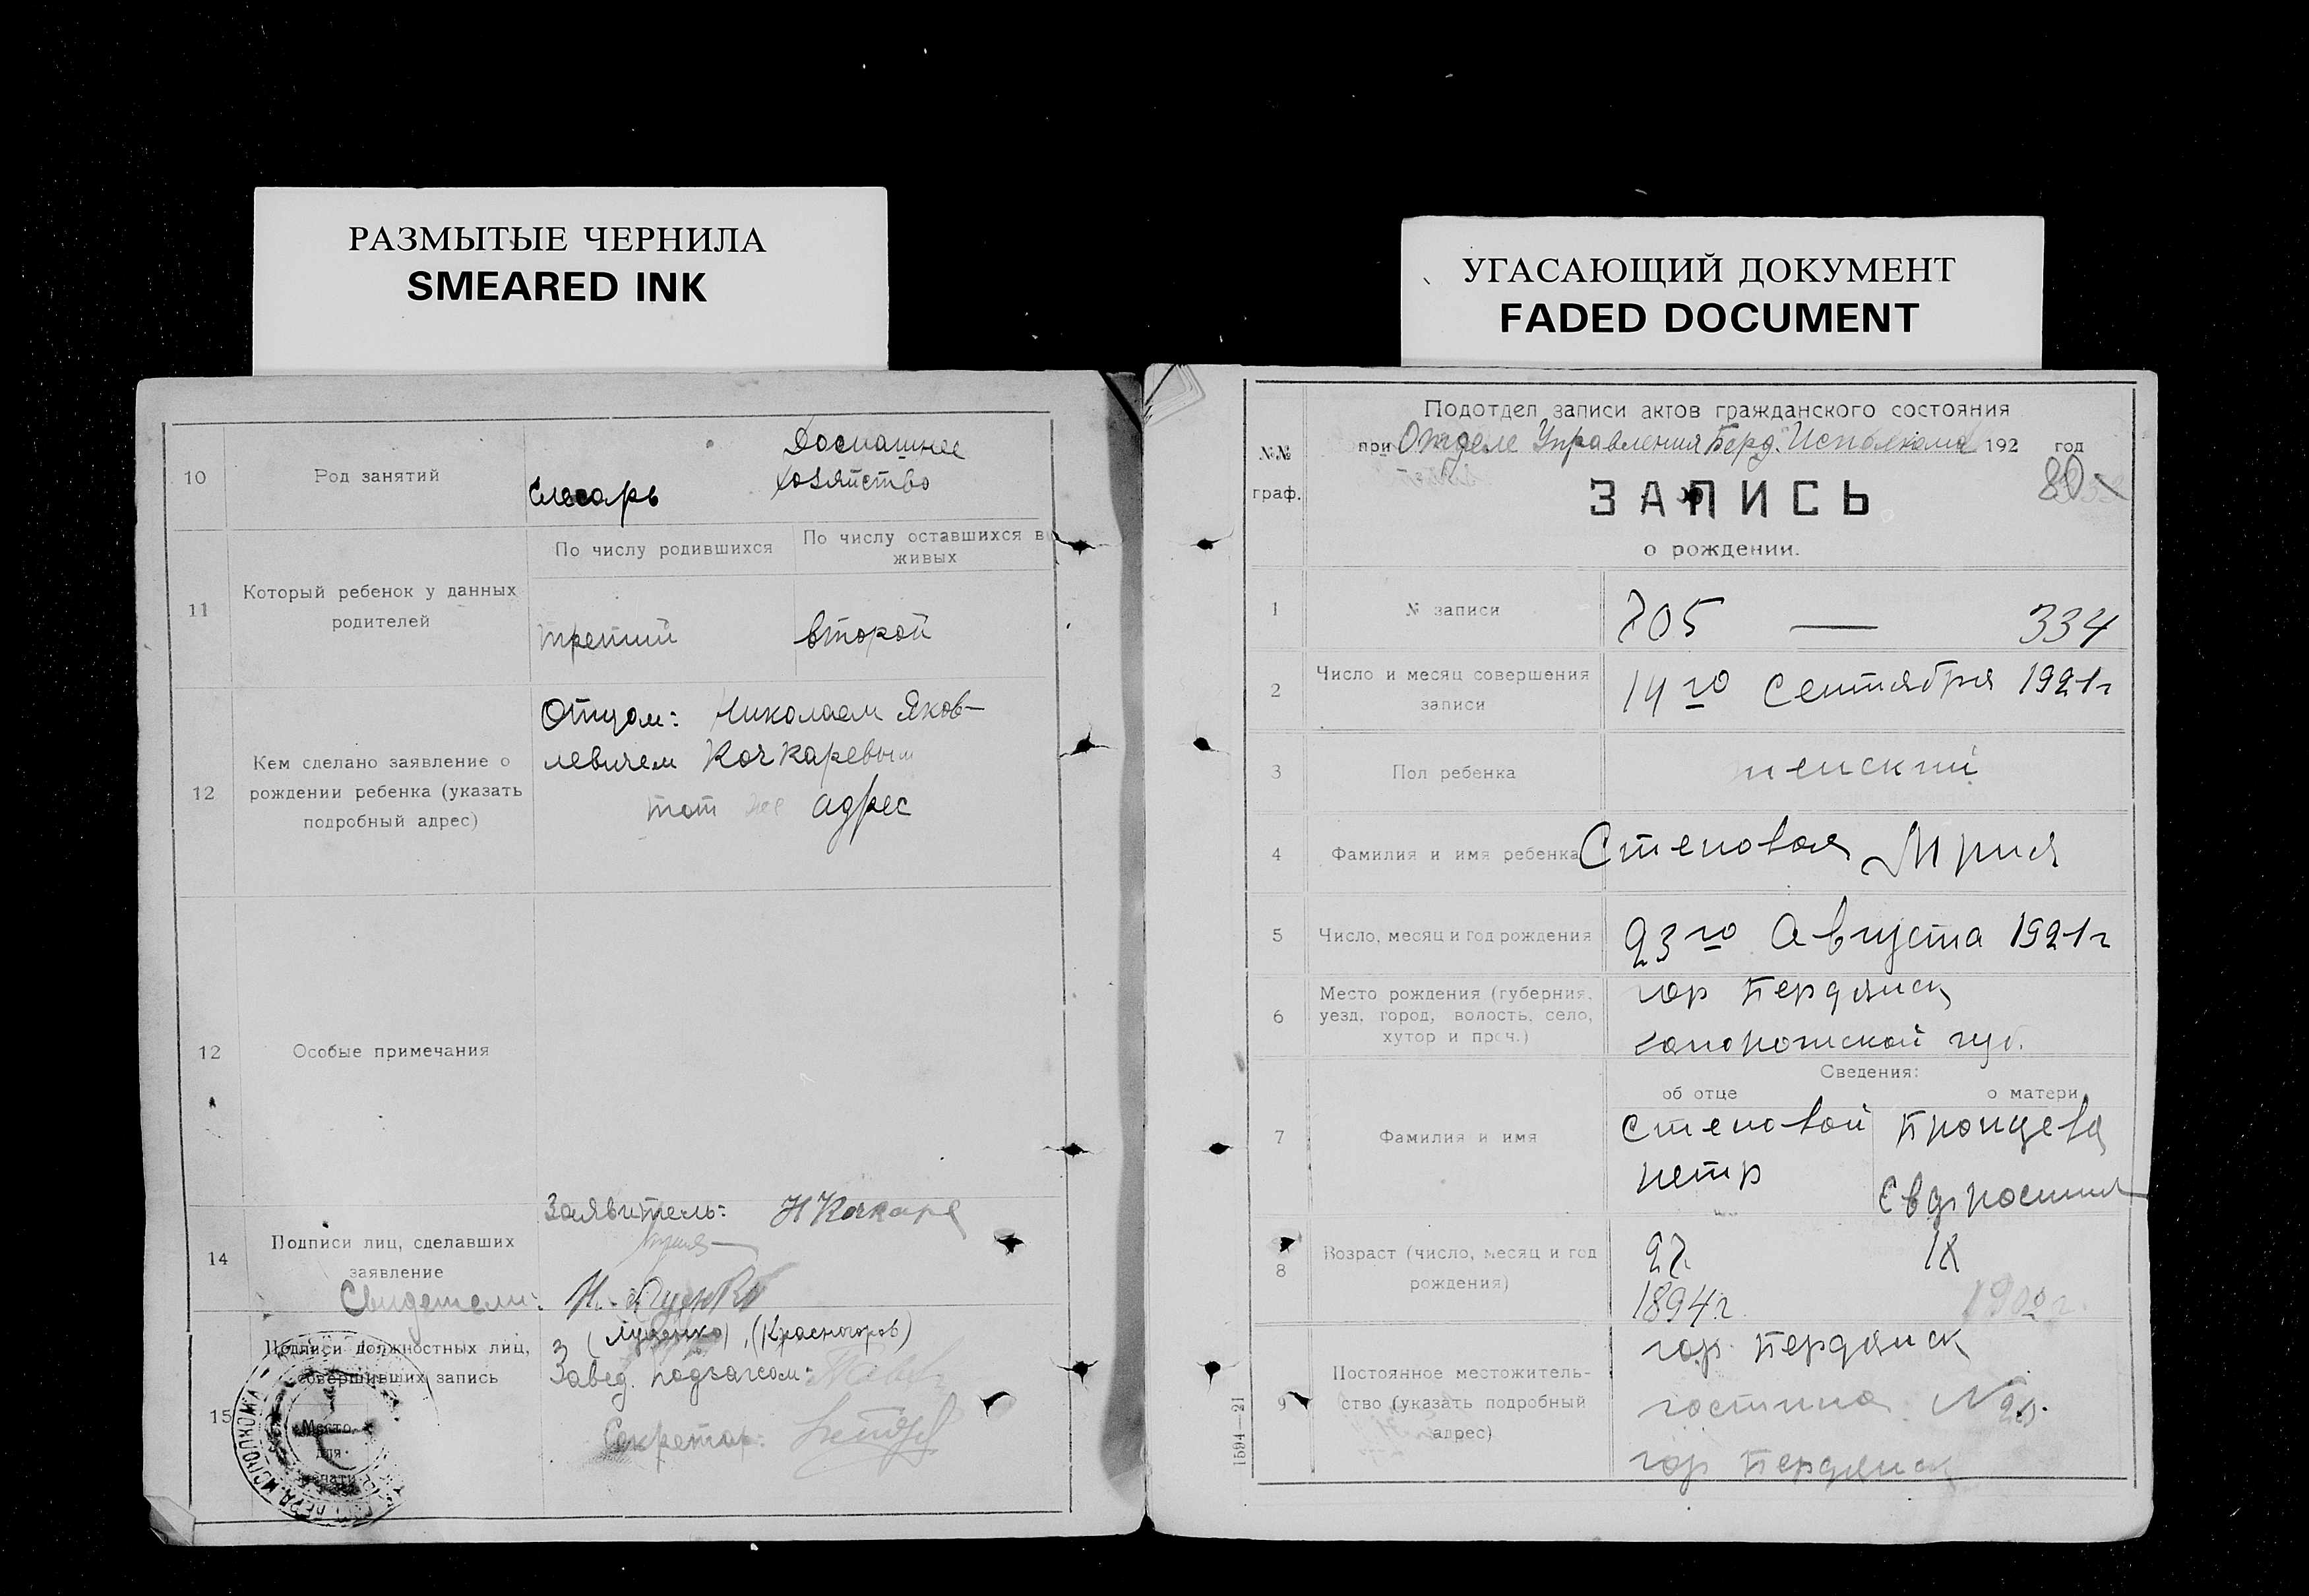 РАЗМЫТЫЕ ЧЕРНИЛА
SMEARED INK
10
Род занятий
слесарь
Домашнее
хозяйство
11
Который ребенок у данных
родителей
По числу родившихся
По числу оставшихся в
живых
третий
второй
12
Кем сделано заявление о
рождении ребенка (указать
подробный адрес)
Отцом: Николаем Яков-
левичем Кочкаревым
тот же адрес
12
Особые примечания
14
Подписи лиц, сделавших
заявление
Заявитель: Н Кочкаре
Свидетели:
(Луценко), (Красногоров)
15
Подписи должностных лиц,
совершивших запись
Место
для
печати
Завед. Подзагсом:
Секретар:
УГАСАЮЩИЙ ДОКУМЕНТ
FADED DOCUMENT
№№
граф.
Подотдел записи актов гражданского состояния
при Отделе Управления Берд. Исполкома 192 год
80
ЗАПИСЬ
о рождении.
1
№ записи
705 — 334
2
Число и месяц совершения
записи
14го Сентября 1921г
3
Пол ребенка
женский
4
Фамилия и имя ребенка
Степовая
5
Число, месяц и год рождения
23го Августа 1921г
6
Место рождения (губерния,
уезд, город, волость, село,
хутор и проч.)
гор Бердянск
Запорожской губ.
Сведения:
об отце
о матери
7
Фамилия и имя
Степовой
Петр
Евдокия
8
Возраст (число, месяц и год
рождения)
27
1894г.
18
190 г.
9
Постоянное местожитель-
ство (указать подробный
адрес)
гор. Бердянск
№ 20.
гор Бердянск
1594—21